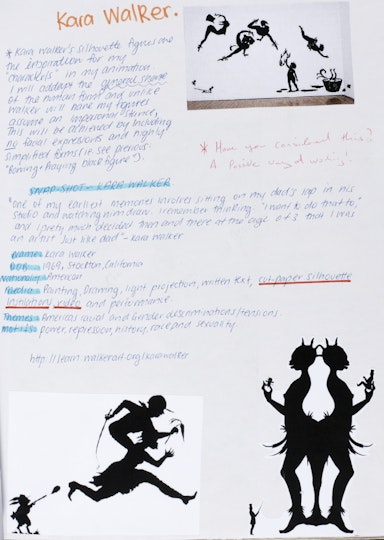 Kara Walker.
* Kara Walker's silhouette figures are
the inspiration for my
"characters" in my animation
I will addapt the general shape
of the human form and unlike
Walker will have my figures
assume an impersonal stance,
This will be achieved by including
no facial expressions and highly
simplified forms (see previous
figure).
* Have you considered this?
A possible way of working!
SNAPP-SHOT- KARA WALKER
"One of my earliest memories involves sitting on my dad's lap in his
studio and watching him draw. I remember thinking: "I want to do that too,"
and I pretty much decided then and there at the age of 3 that I was
an artist just like dad" - Kara Walker
Name: Kara Walker
DOB: 1969, Stockton, California
Nationality: American
Media: Painting, Drawing, light projection, written text, cut-paper silhouette
instillations, video and performance.
Themes: Americas racial and Gender discriminations/tensions.
Motifs: Power, repression, history, race and sexuality.
http://learn.walkerart.org/karawalker